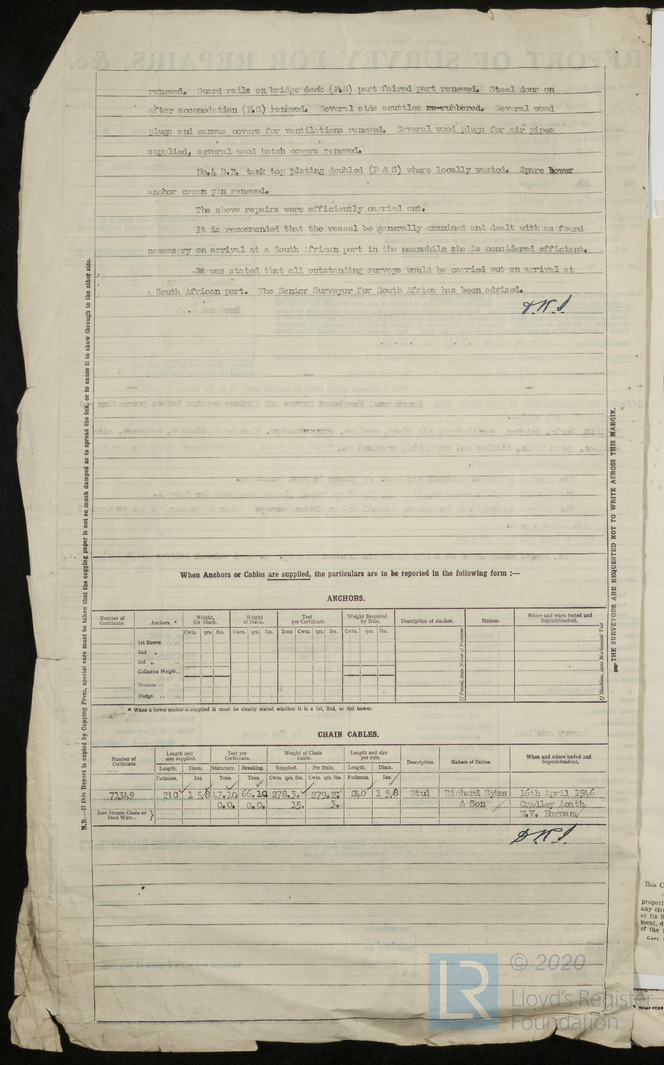 renewed. Guard rails on bridge deck (P.S) part faired part renewed. Steel door on
after accomodation (P.S) renewed. Several side scuttles re-rubbered. Several wood
plugs and canvas covers for ventilations renewed. Several wood plugs for air pipes
supplied, several wood hatch covers renewed.
No.4 D.B. tank top plating doubled (P & S) where locally wasted. Spare Bower
anchor crown pin renewed.
The above repairs were efficiently carried out.
It is recommended that the vessel be generally examined and dealt with as found
necessary on arrival at a South African port in the meanwhile she is considered efficient.
It was stated that all outstanding surveys would be carried out on arrival at
a South African port. The Senior Surveyor for South Africa has been advised.
N.B.—If this Report is copied by Copying Press, special care must be taken that the copying paper is not so much damped as to spread the ink, or to cause it to show through to the other side.
THE SURVEYORS ARE REQUESTED NOT TO WRITE ACROSS THIS MARGIN.
When Anchors or Cables are supplied, the particulars are to be reported in the following form :—
ANCHORS.
Number of Certificate. Anchors. * Weight, Ex Stock. Weight of Stock. Test per Certificate. Weight Required by Rule. Description of Anchor. Makers. Where and when tested and Superintendent.
Cwts. qrs. lbs. Cwts. qrs. lbs. Tons Cwts. qrs. lbs. Cwts. qrs. lbs.
1st Bower
2nd "
3rd "
Collective Weight
Stream
Kedge
If Patent, state Name of Patentee
If Stockless, state Mechanical Test
* When a bower anchor is supplied it must be clearly stated whether it is a 1st, 2nd, or 3rd bower.
CHAIN CABLES.
Number of Certificate. Length and size supplied. Test per Certificate. Weight of Chain Cable. Length and size per rule. Description. Makers of Cables. When and where tested and Superintendent.
Length. Diam. Statutory. Breaking. Supplied. Per Rule. Length. Diam.
Fathoms. Ins. Tons. Tons. Cwts. qrs. lbs. Cwts. qrs. lbs. Fathoms. Ins.
71349 240 1 5/8 47.10 66.10 278.3. 279.2. 240 1 5/8 Stud Richard Sykes 16th April 1946
0.0. 0.0. 15. 3. & Son Cradley Heath
Iron Stream Chain or Steel Wire.. } W.V. Norman
© 2020
LR
Lloyd's Register
Foundation
This C
properl
any cir
or its S
ment, d
of the
Cert